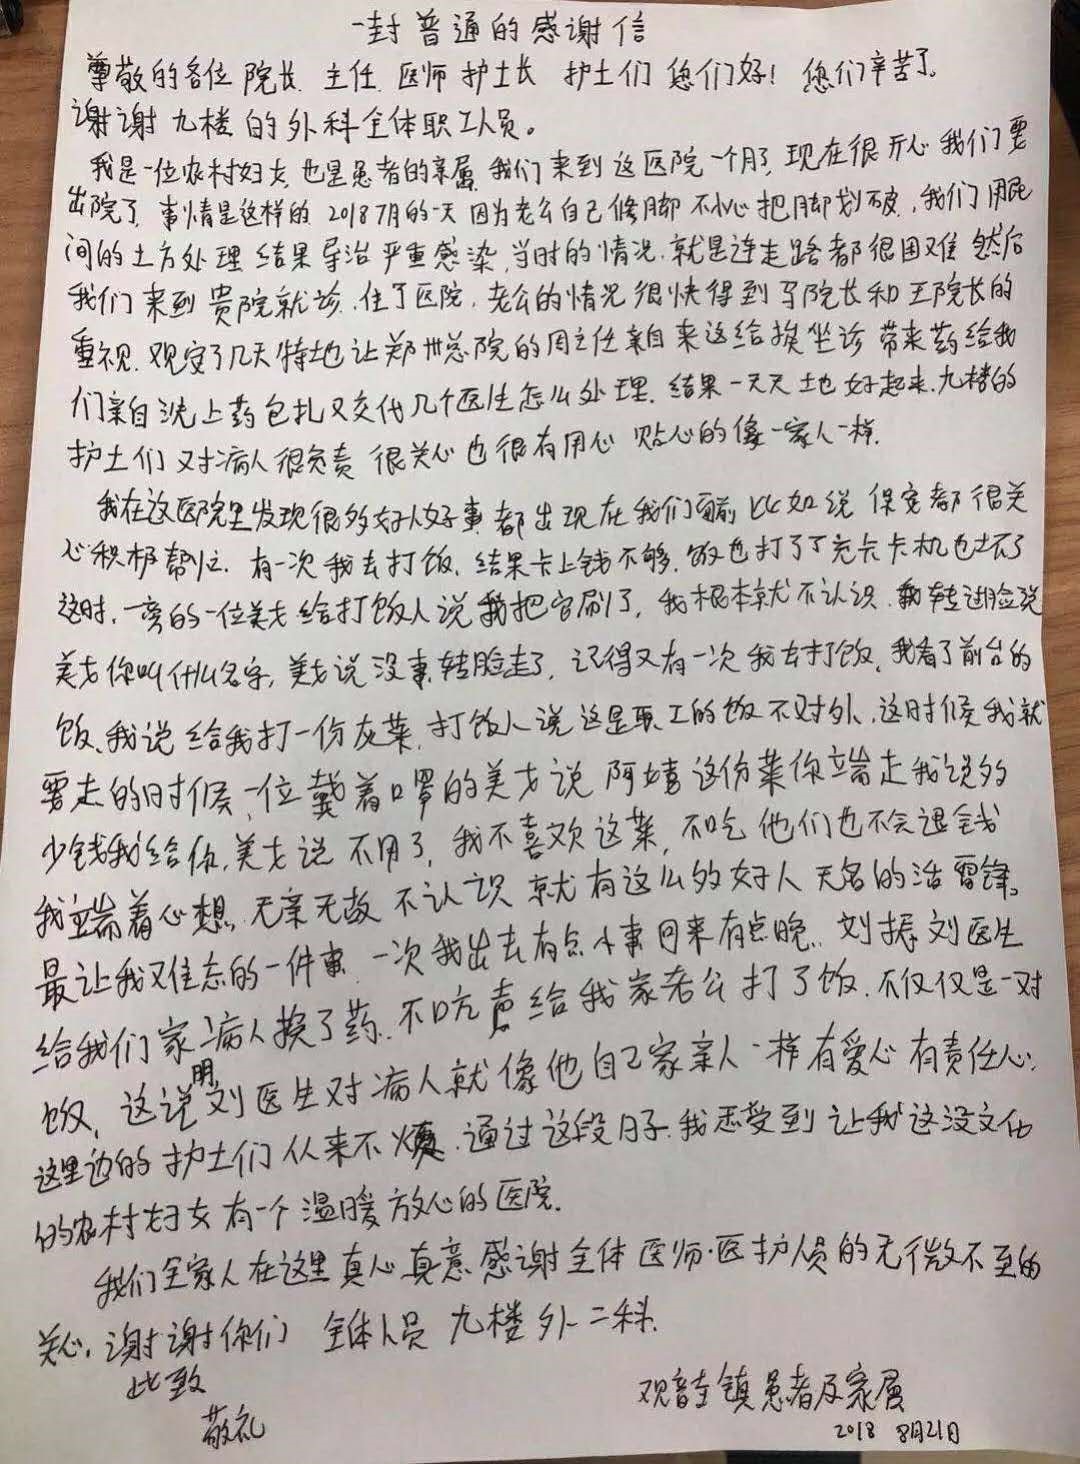 一封普通的感谢信
尊敬的各位院长 主任 医师 护士长 护士们 您们好！您们辛苦了。
谢谢九楼的外科全体职工人员。
我是一位农村妇女也是患者的亲属 我们来到这医院一个月了 现在很开心 我们要
出院了 事情是这样的 2018 7月的一天 因为老公自己修脚 不小心把脚划破，我们用民
间的土方处理 结果导治严重感染 当时的情况 就是连走路都很困难 然后
我们来到贵院就诊 住了医院 老公的情况很快得到 院长和王院长的
重视 观 了几天特地让郑州总院的周主任亲自来这给 坐诊 带来药给我
们亲自洗上药包扎又交代几个医生怎么处理 结果一天天地好起来 九楼的
护士们对病人很负责 很关心也很有用心 贴心的像一家人一样.
我在这医院里发现很多好人好事 都出现在我们面前 比如说 保安都很关
心积极帮忙 有一次我去打饭，结果卡上钱不够，饭也打了 充卡卡机也坏了
这时，一旁的一位美女给打饭人说我把它刷了，我根本就不认识 我转过脸说
美女你叫什么名字，美女说没事转脸走了，记得又有一次我去打饭，我看了前台的
饭、我说给我打一份 菜，打饭人说这是职工的饭不对外，这时候我就
要走的时候，一位戴着口罩的美女说 阿姨这份菜你端走我说多
少钱我给你，美女说不用了，我不喜欢这菜，不吃他们也不会退钱
我端着心想，无亲无故 不认识 就有这么多好人 无名的活雷锋。
最让我难忘的一件事 一次我出去有点小事回来有点晚，刘振刘医生
给我们家病人换了药，不吭声给我家老公打了饭，不仅仅是一对
饭，这说明刘医生对病人就像他自己家亲人一样有爱心有责任心;
这里边的护士们从来不烦，通过这段日子 我 受到让我这没文化
的农村妇女有一个温暖放心的医院.
我们全家人在这里真心真意感谢全体医师·医护人员的无微不至的
关心，谢谢你们 全体人员 九楼外二科.
此致
敬礼
观音寺镇患者及家属
2018 8月21日